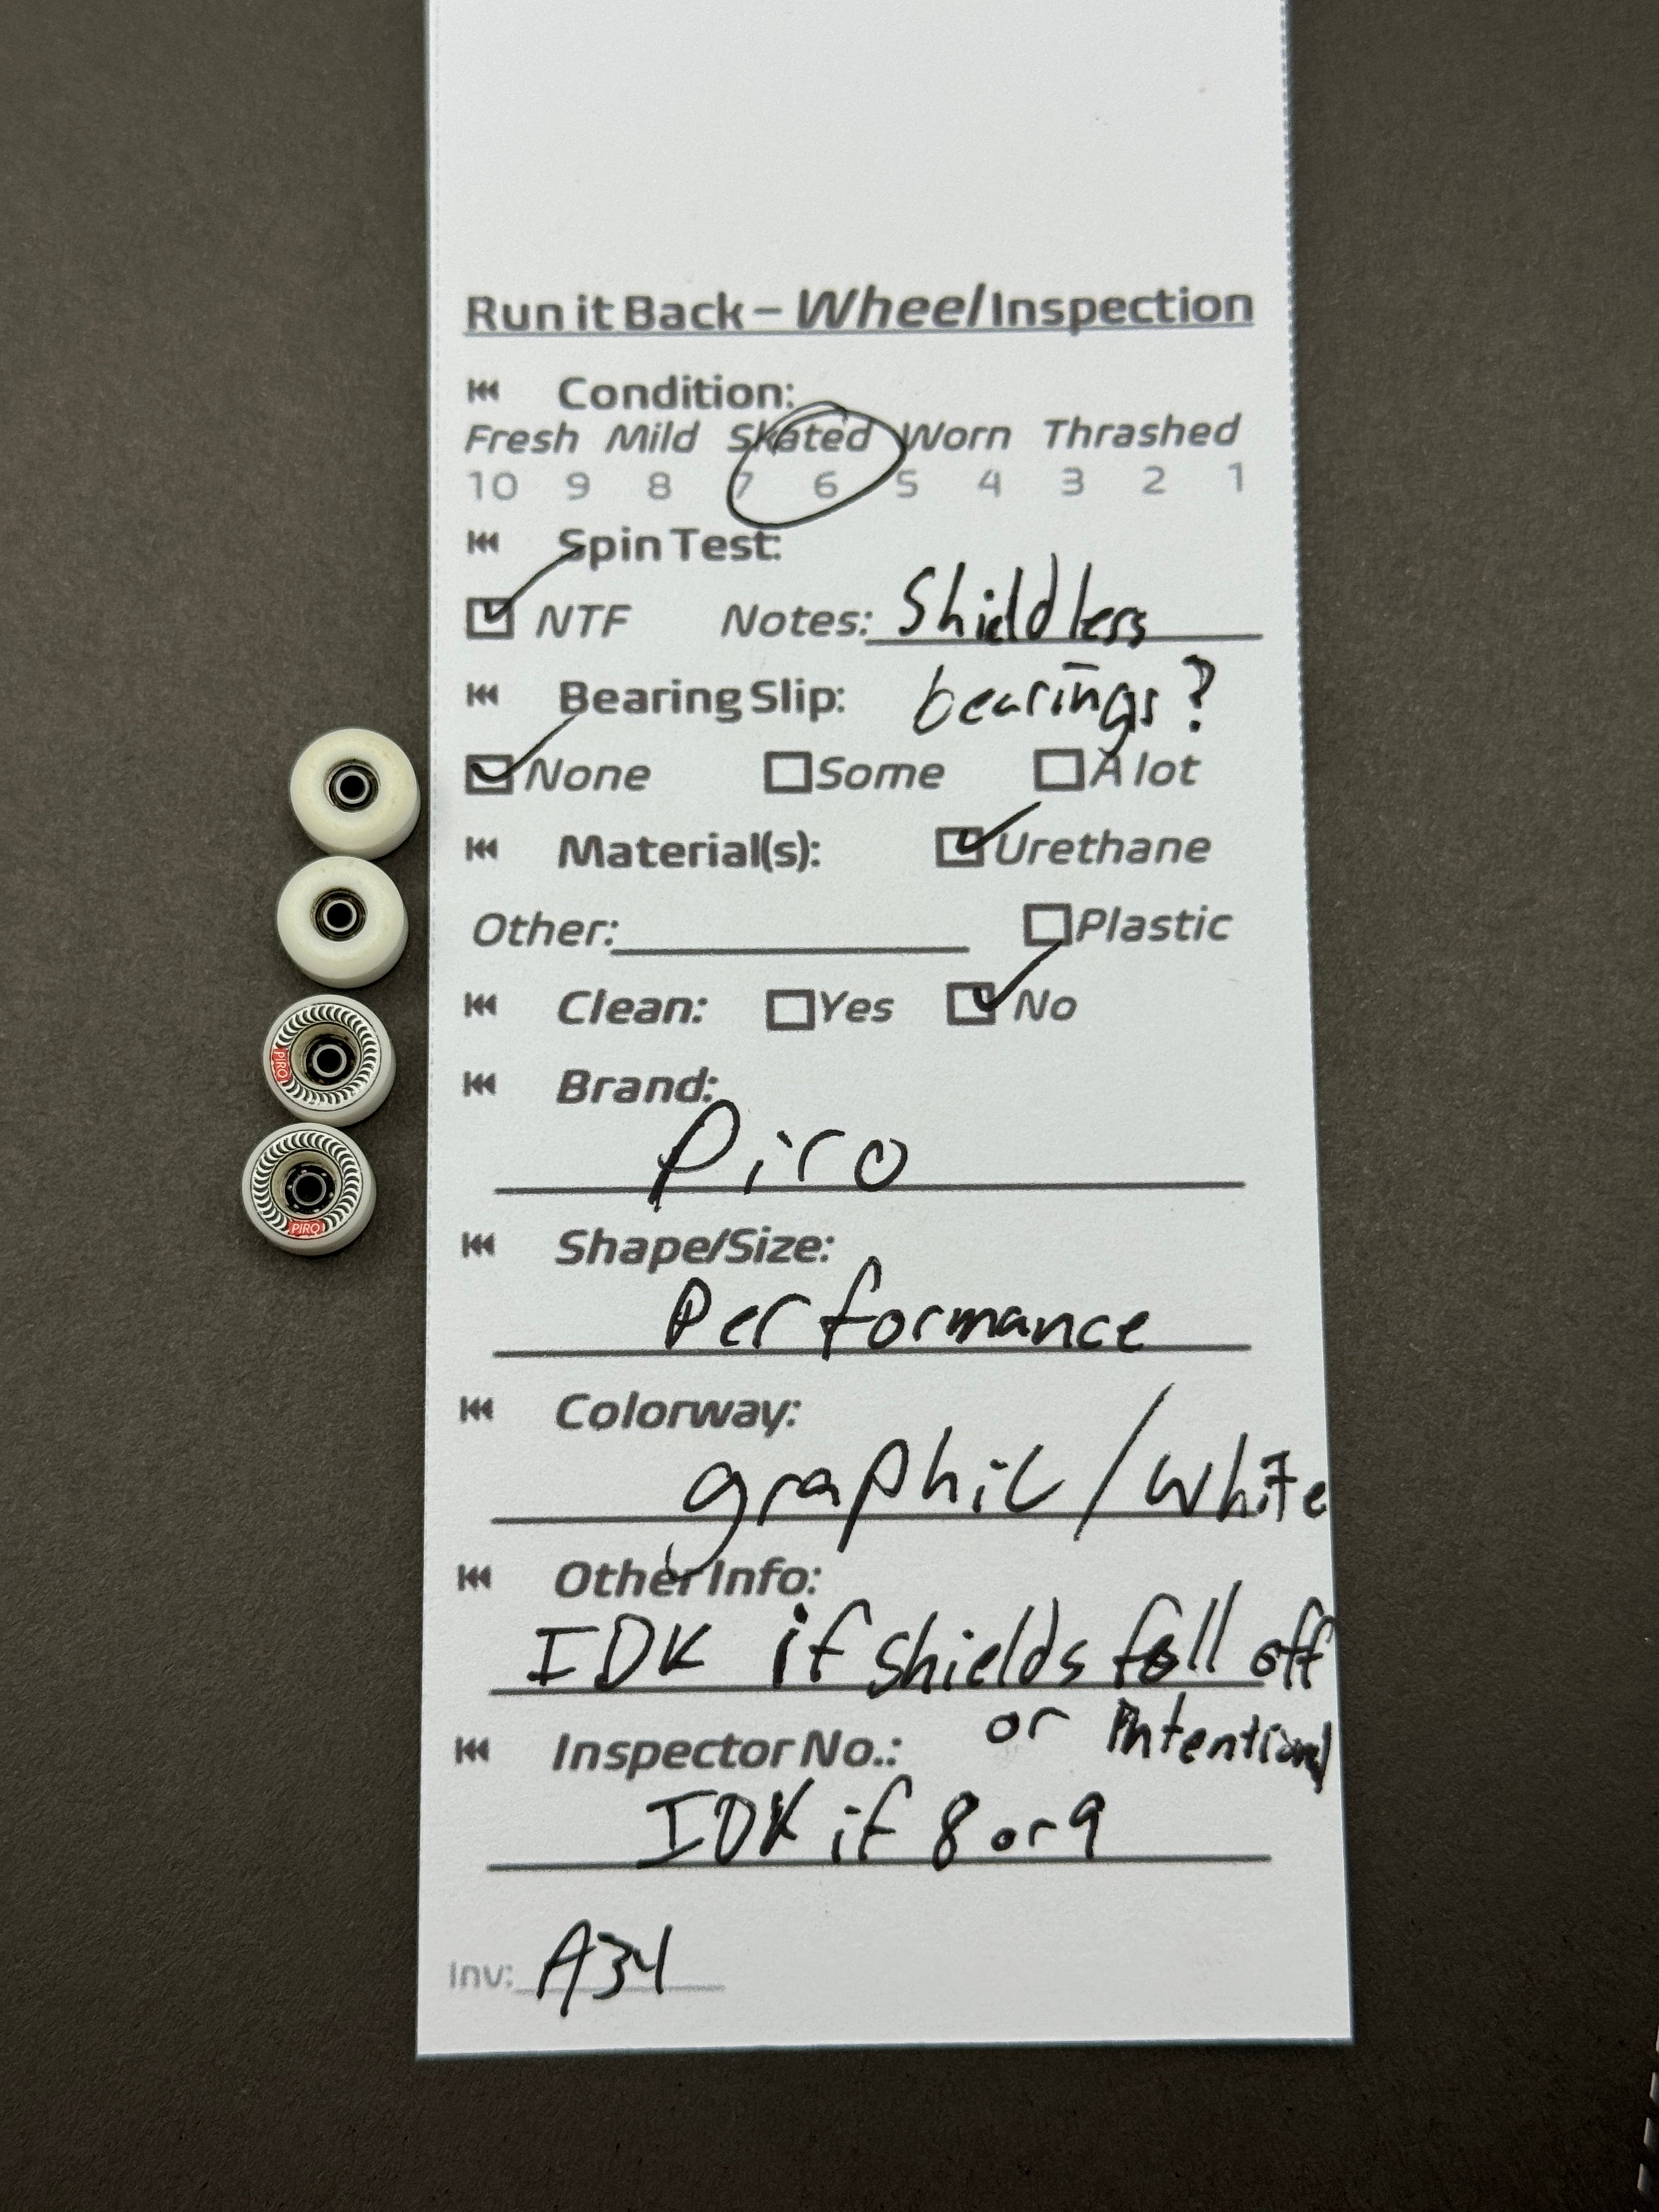 Run it Back – Wheel Inspection
Condition:
Fresh Mild Skated Worn Thrashed
10 9 8 7 6 5 4 3 2 1
Spin Test:
NTF Notes: Shieldless
bearings?
Bearing Slip:
None Some A lot
Material(s): Urethane
Other: Plastic
Clean: Yes No
Brand:
Piro
Shape/Size:
Performance
Colorway:
graphic/white
Other Info:
IDK if shields fall off
or intentional
Inspector No.:
IDK if 8 or 9
Inv: A34
PIRO
PIRO